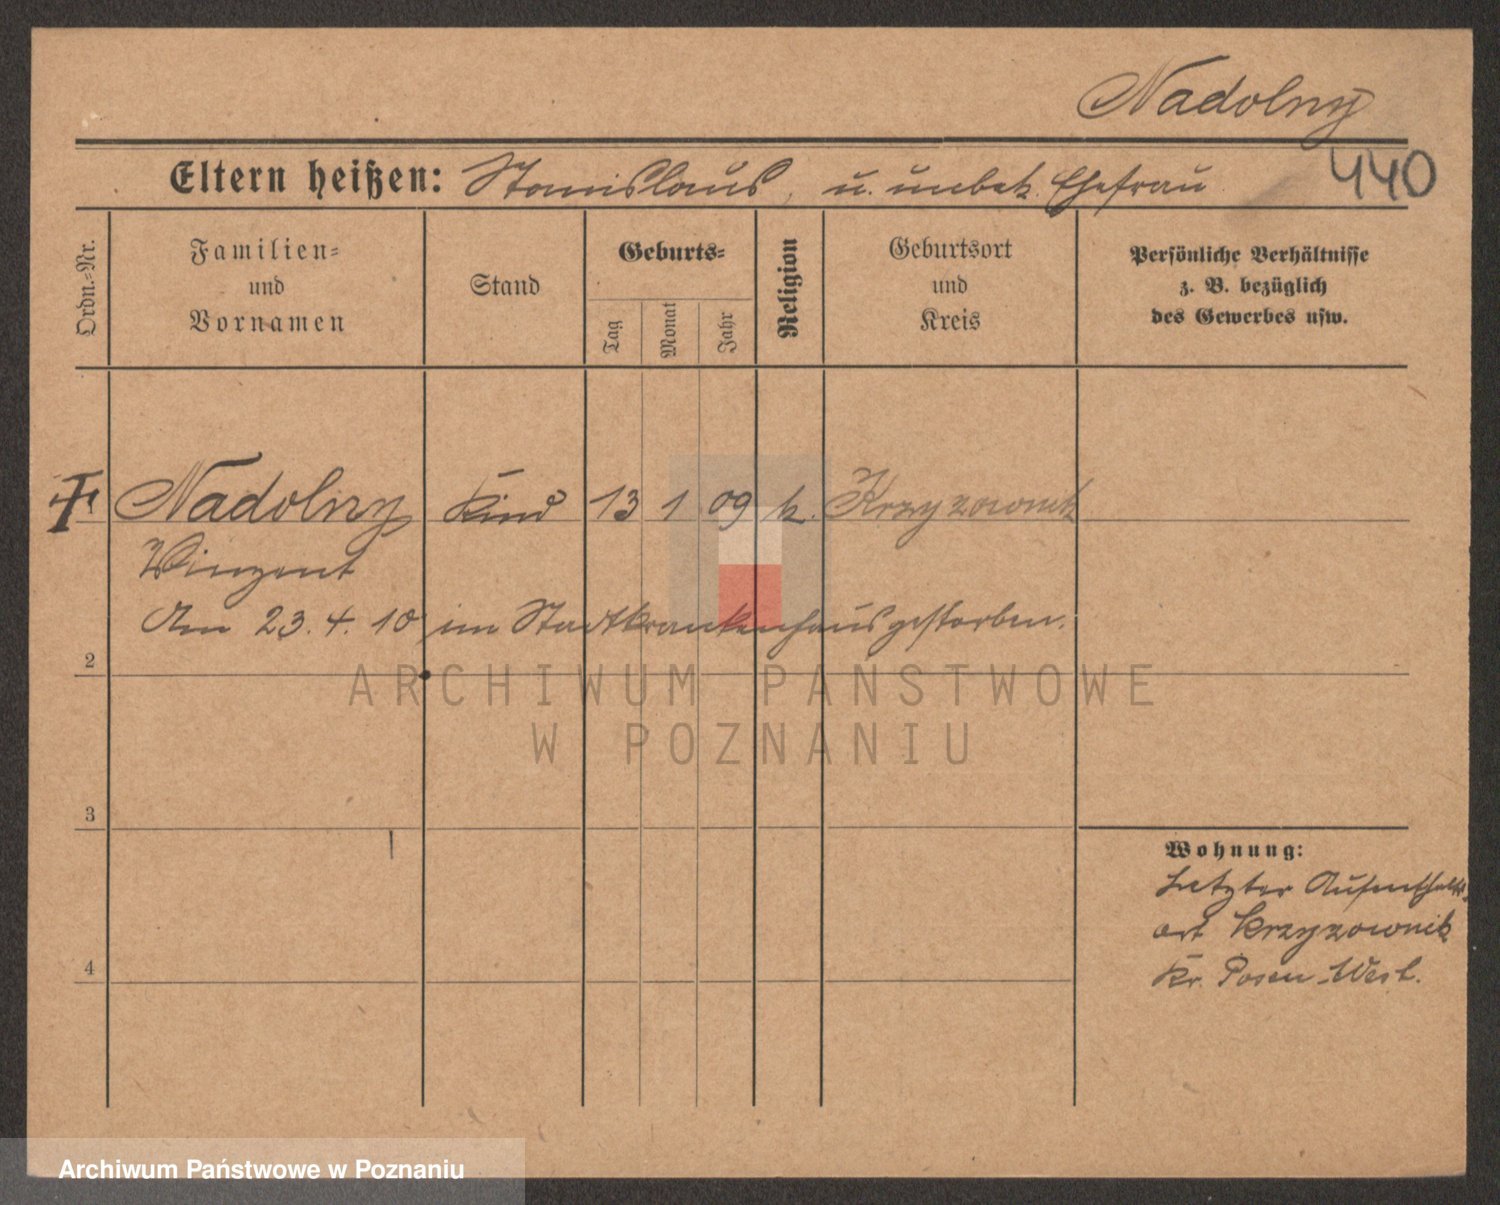 Nadolny
Eltern heißen: Stanislaus, u. unbek. Ehefrau
440
Ordn.-Nr.
Familien-
und
Vornamen
Stand
Geburts-
Tag
Monat
Jahr
Religion
Geburtsort
und
Kreis
Persönliche Verhältnisse
z. B. bezüglich
des Gewerbes usw.
1 Nadolny Kind 13 1 09 k. Krzyzownik
Vinzent
Am 23. 4. 10 im Stadtkrankenhaus gestorben.
2
ARCHIWUM PAŃSTWOWE
W POZNANIU
3
Wohnung:
Letzter Aufenthalts
ort Krzyzownik
Kr. Posen-West.
4
Archiwum Państwowe w Poznaniu